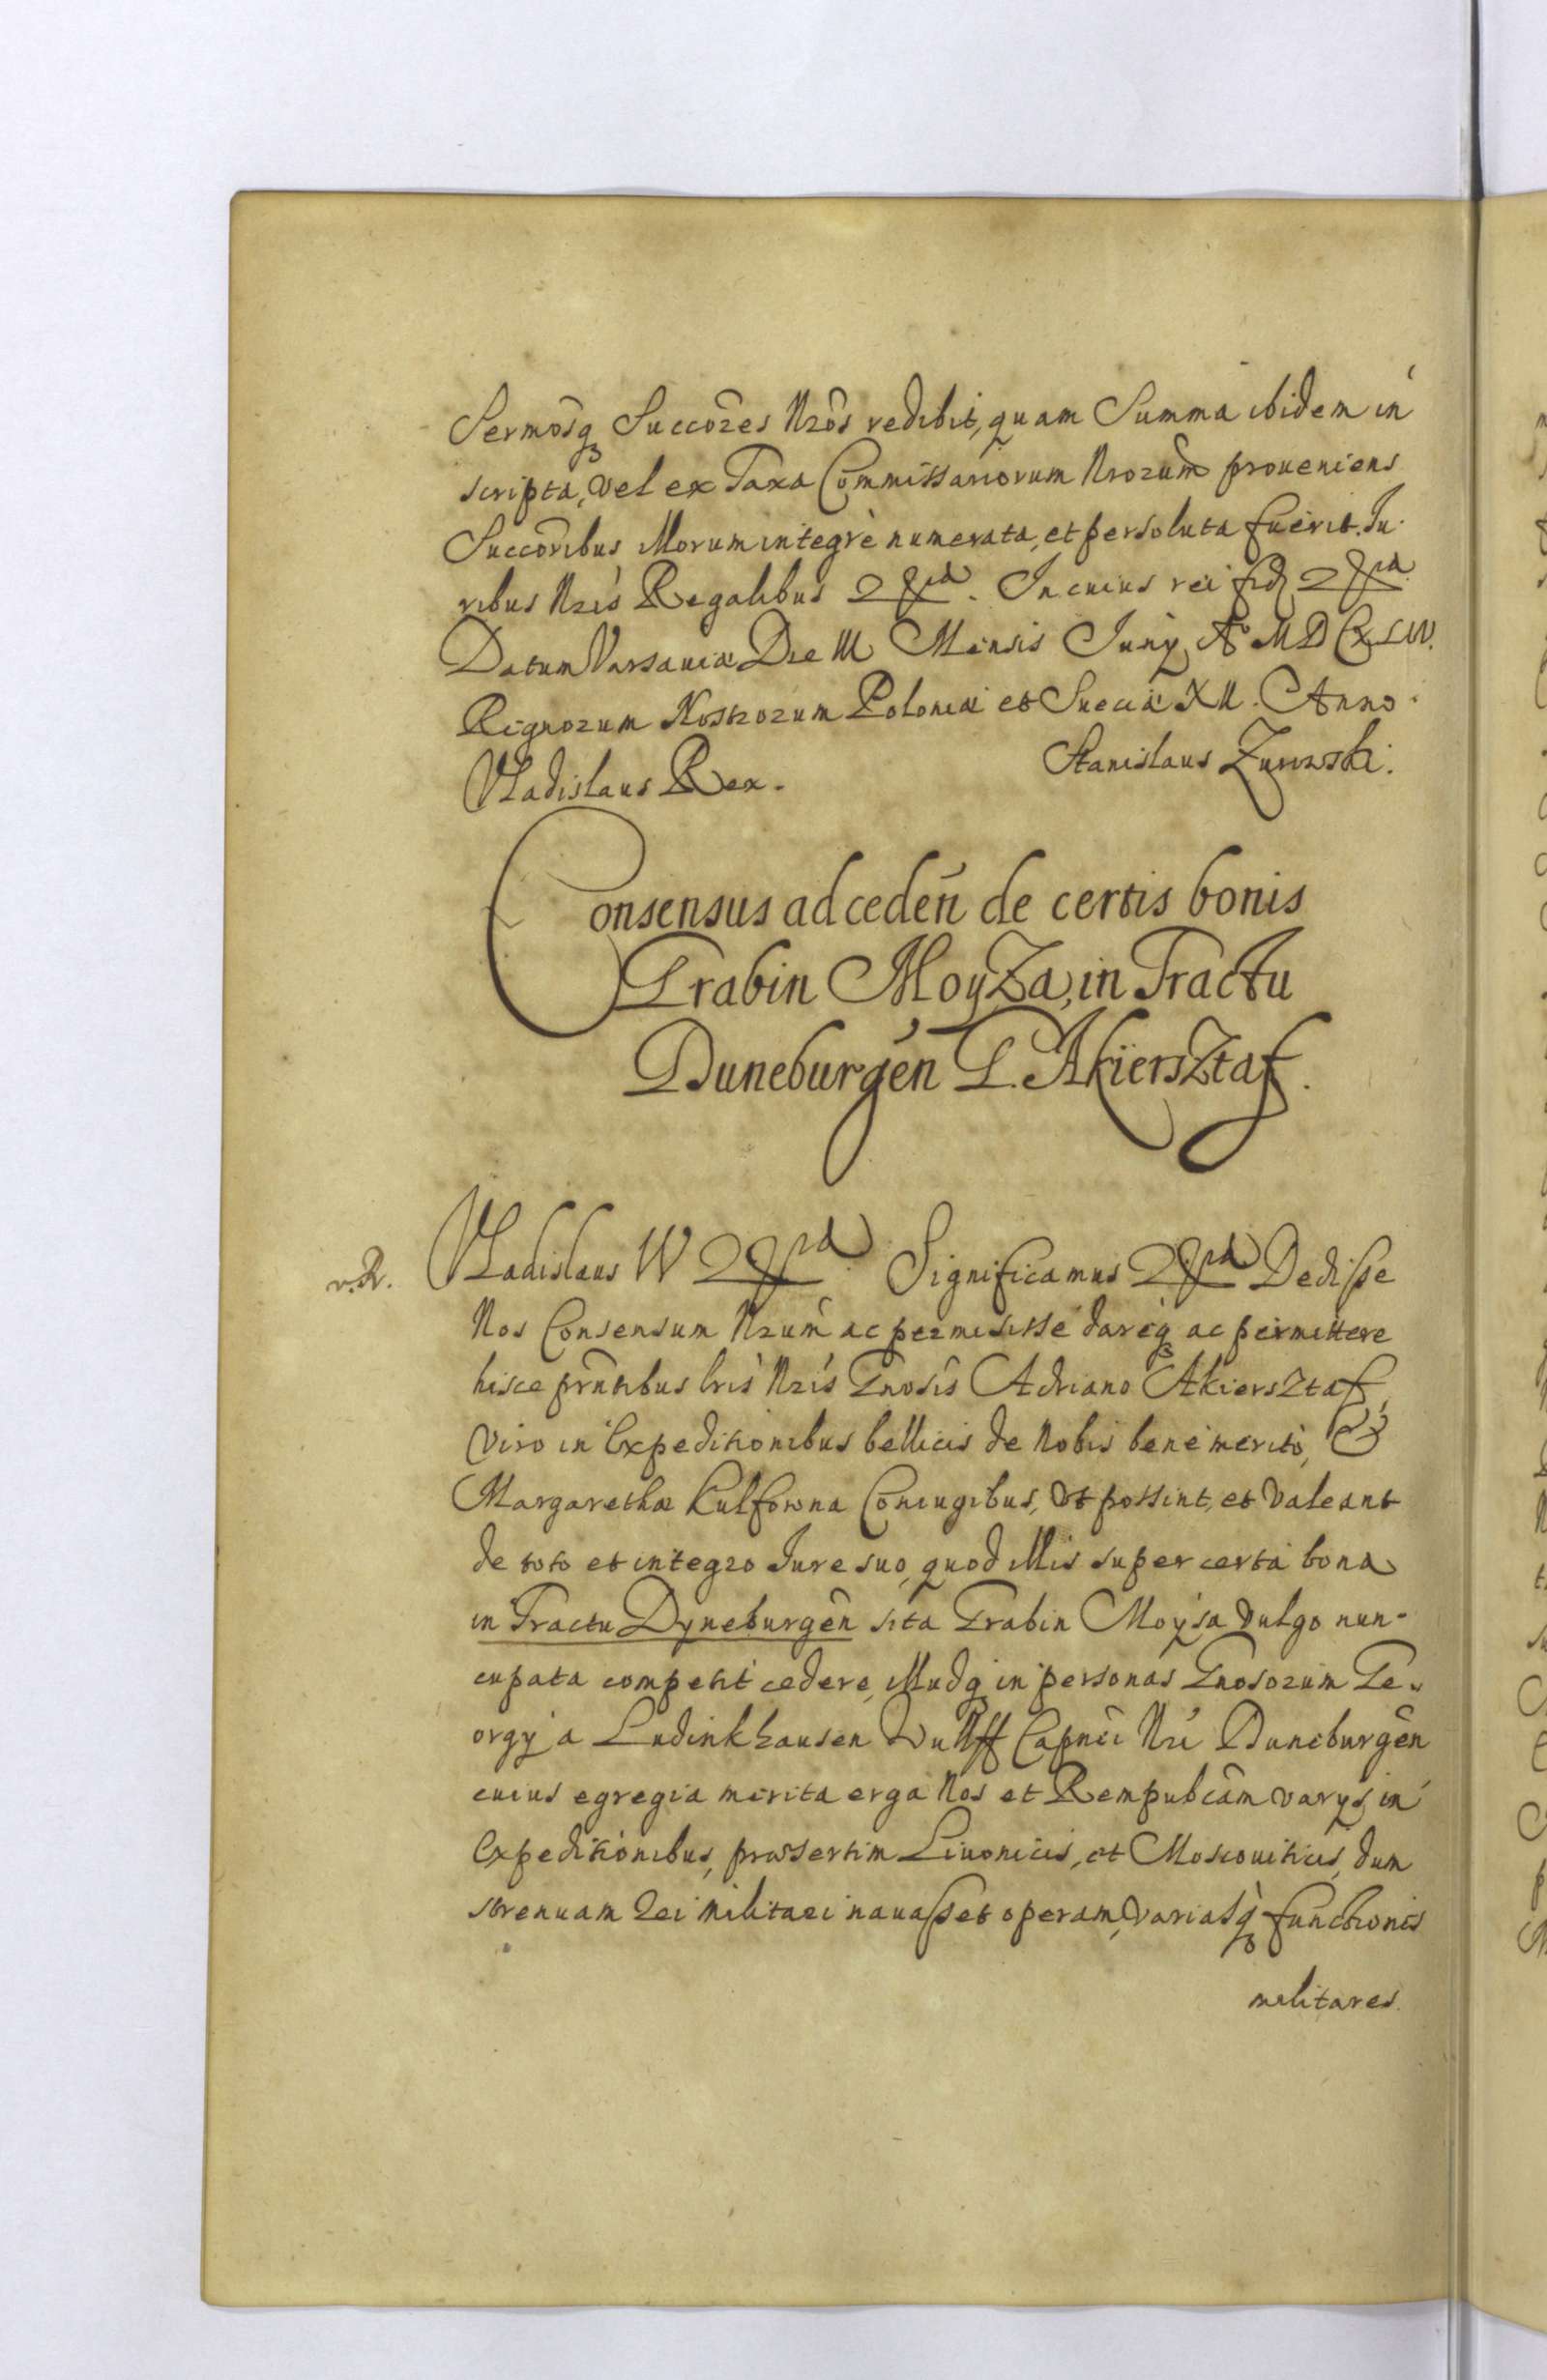 Sermosq Succores Nros redibit, quam Summa ibidem in
scripta, vel ex Taxa Commissariorum Nrorum proueniens
Succoribus illorum integrè numerata, et persoluta fuerit. Iu-
ribus Nris Regalibus. In cuius rei fid
Datum Varsauiæ Die III Mensis Iunÿ A°
Regnorum Nostrorum Poloniæ et Sueciæ XII. Anno.
Vladislaus Rex. Stanislaus
Consensus ad ceden de certis bonis
Grabin MoyZa, in Tractu
Duneburgen G. AkiersZtaf.
v. R. Vladislaus IV Significamus Dedisse
Nos Consensum Nrum ac permisisse dareq ac permittere
hisce prntibus lris Nris Gnosis Adriano AkiersZtaf,
viro in Expeditionibus bellicis de Nobis bene merito, &
Margarethæ Kulfowna Coniugibus, Vt possint, et Valeant
de toto et integro Iure suo, quod illis super certa bona
in Tractu Dyneburgen sita Grabin Moysa vulgo nun-
cupata competit cedere, illudq in personas Gnosorum Ge-
orgÿ a Ludinkhausen Wulff Capnei Nri Duneburgen
cuius egregia merita erga Nos et Rempubcam varÿs in
Expeditionibus, præsertim Liuonicis, et Moscouiticis, dum
strenuam Rei militari nauasset operam, variasq functiones
militares